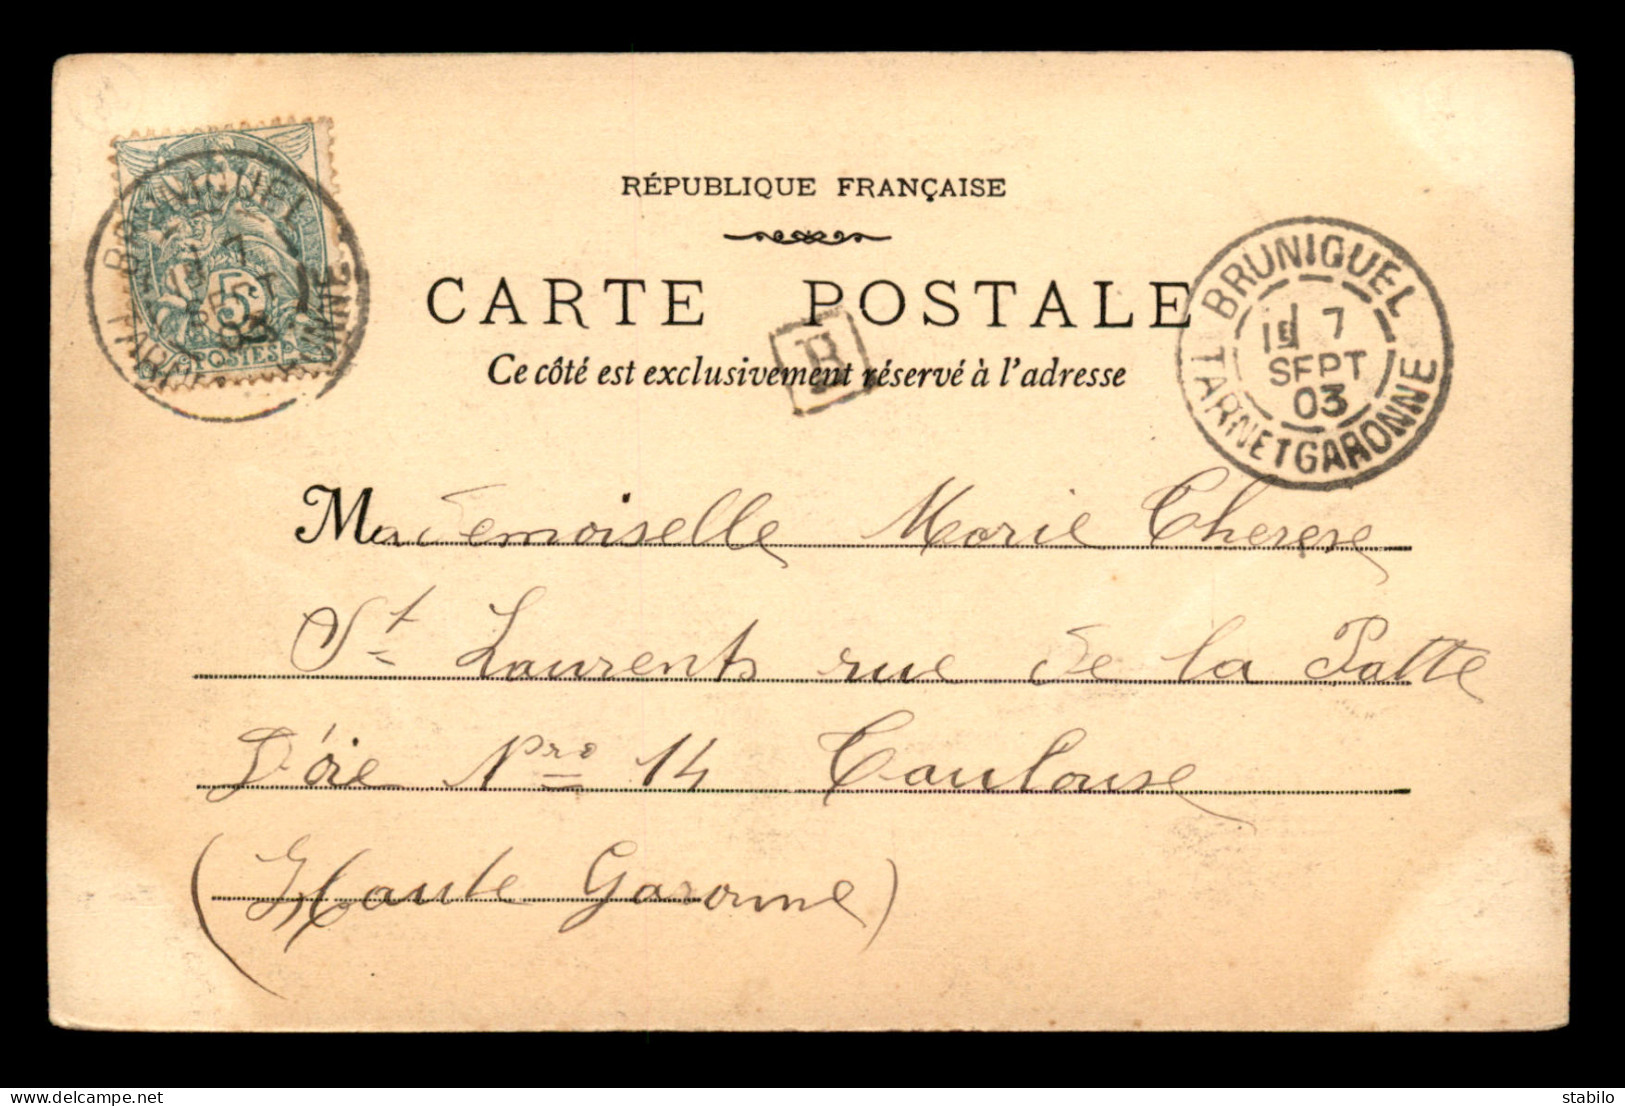 RÉPUBLIQUE FRANÇAISE
CARTE POSTALE
Ce côté est exclusivement réservé à l'adresse
BRUNIQUEL
7
SEPT
03
TARN ET GARONNE
BRUNIQUEL
7
5
POSTES
B
Mademoiselle Marie Therese
St Laurents rue de la Patte
D'oie Nro 14 Toulouse
(Haute Garonne)
delcampe.net
stabilo